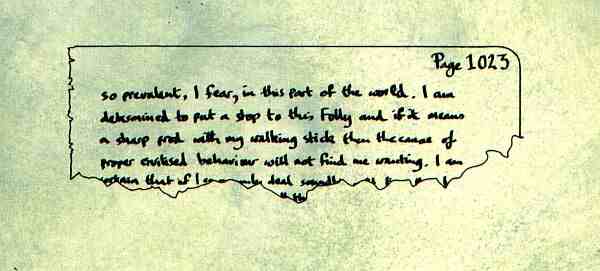 Page 1023
so prevalent, I fear, in this part of the world. I am
determined to put a stop to this Folly and if it means
a sharp prod with my walking stick then the cause of
proper civilised behaviour will not find me wanting. I am
certain that if I can only deal soundly